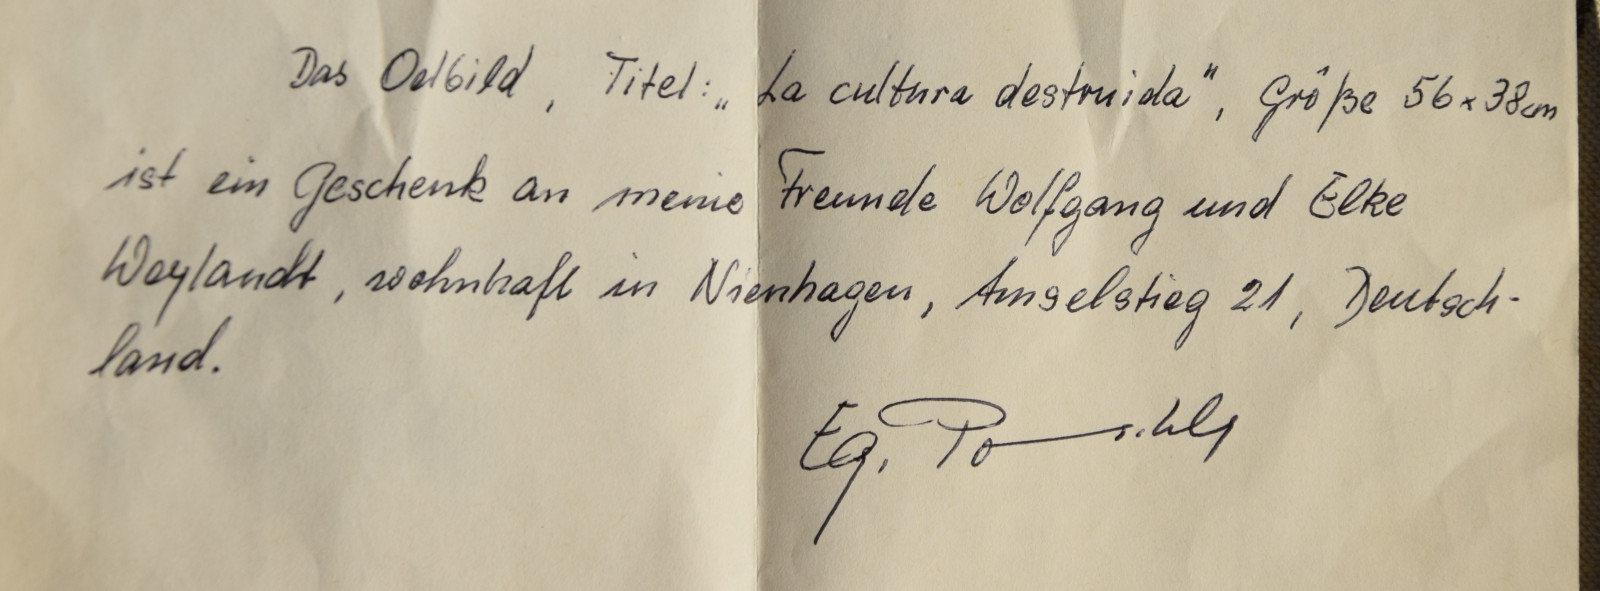 Das Oelbild, Titel: „La cultura destruida", Größe 56 x 38 cm
ist ein Geschenk an meine Freunde Wolfgang und Elke
Weylandt, wohnhaft in Nienhagen, Amselstieg 21, Deutsch-
land.
Eg.